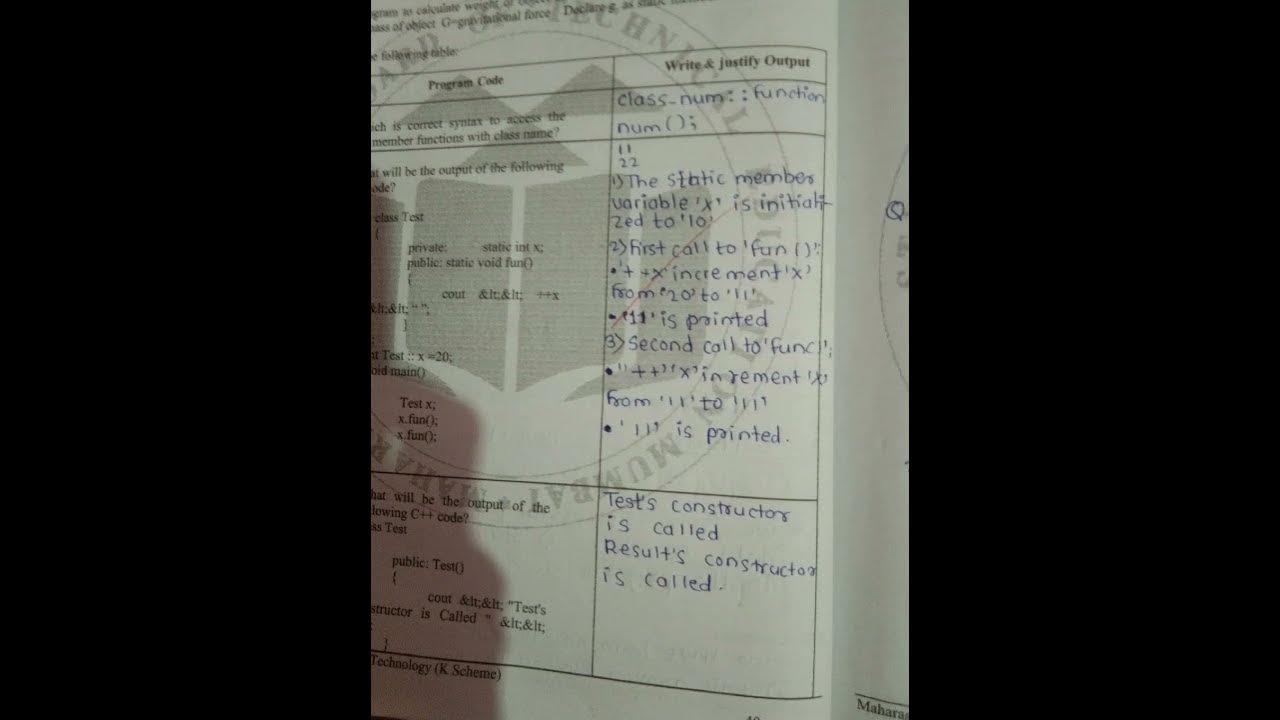 ogram to calculate weight of object
mass of object G=gravitational force Declare g, as static
e following table:
Program Code
Write & justify Output
ich is correct syntax to access the
member functions with class name?
class_num::function
num();
at will be the output of the following
ode?
class Test
{
private: static int x;
public: static void fun()
{
cout &lt;&lt; ++x
&lt;&lt; " ";
}
;
t Test :: x =20;
oid main()
Test x;
x.fun();
x.fun();
11
22
1) The static member
variable 'x' is initiali-
zed to '10'
2) First call to 'fun()':
• '++x' increment 'x'
from '20' to '11'
• '11' is printed
3) Second call to 'func)';
• "++''x' increment 'x'
from '11' to '111'
• '111' is printed.
hat will be the output of the
llowing C++ code?
ss Test
public: Test()
{
cout &lt;&lt; "Test's
structor is Called " &lt;&lt;
;
}
Test's constructor
is called
Result's constructor
is called.
Technology (K Scheme)
BOARD OF TECHNICAL EDUCATION MUMBAI MAHAR
Q
ES
Mahara